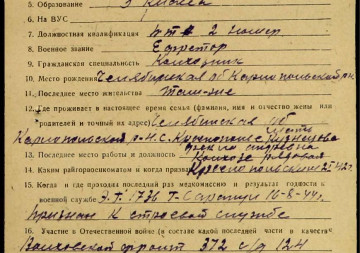 5. Образование 3 класса
6. На ВУС
7. Должностная квалификация 2 номер
8. Военное звание Ефретор
9. Гражданская специальность Колхозник
10. Место рождения Челябинская об Каргопольский р-н
11. Последнее место жительства Там-же
12. Где проживает в настоящее время семья (фамилия, имя и отчество жены или
родителей и точный адрес) Челябинская об
Каргопольской р-н С. мать Кузнецова
13. Последнее место работы и должность Колхозе рядовая
14. Каким райгорвоенкоматом и когда призван
15. Когда и где проходил последний раз медкомиссию и результат годности к
военной службе Э.Г. 1736 Г-Сарапул 16-8-44г.
Признан к строевой службе
16. Участие в Отечественной войне (в составе какой последней части и в качестве
Волховский фронт 372 с/д 124